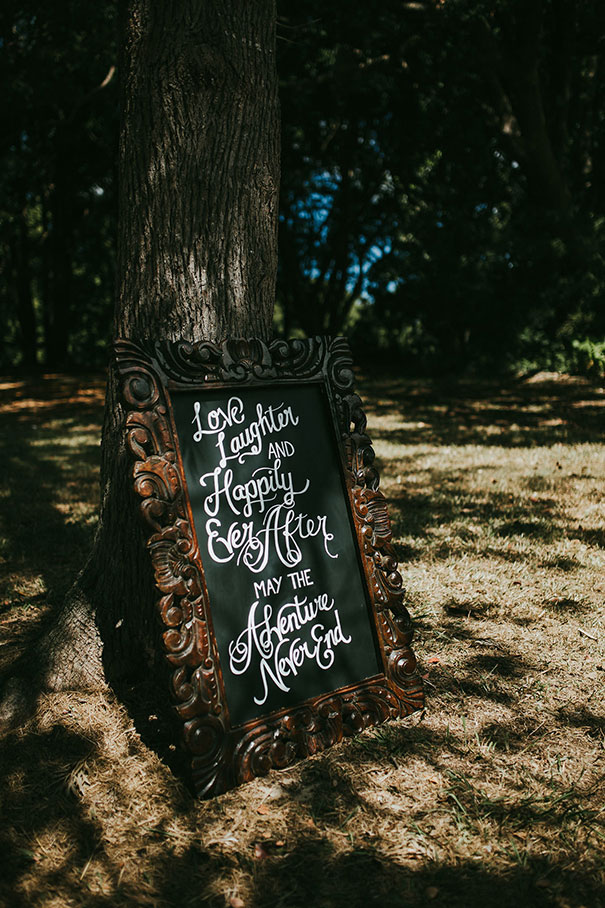 Love
Laughter
AND
Happily
Ever After
MAY THE
Adventure
Never End